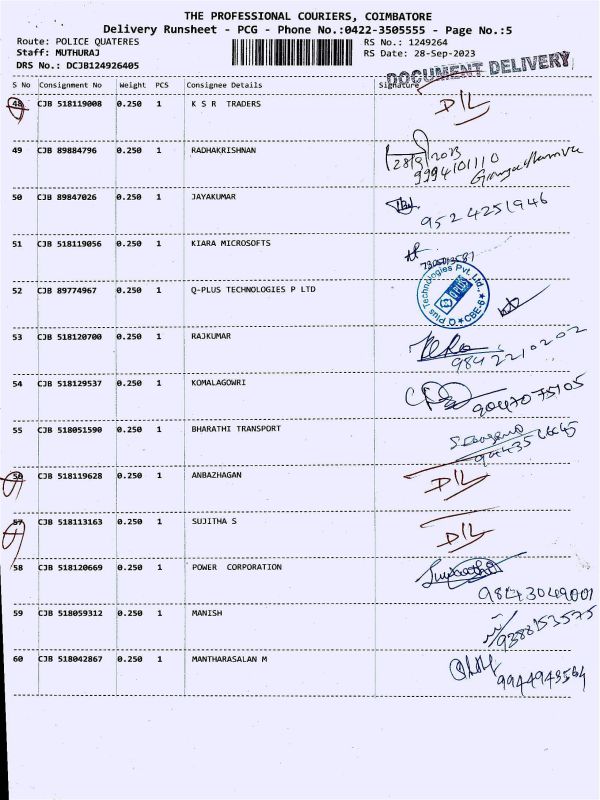 THE PROFESSIONAL COURIERS, COIMBATORE
Delivery Runsheet - PCG - Phone No.:0422-3505555 - Page No.:5
Route: POLICE QUATERES
RS No.: 1249264
Staff: MUTHURAJ
RS Date: 28-Sep-2023
DRS No.: DCJB124926405
DOCUMENT DELIVERY
S No Consignment No Weight PCS Consignee Details Signature
48 CJB 518119008 0.250 1 K S R TRADERS D/L
49 CJB 89884796 0.250 1 RADHAKRISHNAN 28/9/2023
9994101110
50 CJB 89847026 0.250 1 JAYAKUMAR 9524251946
51 CJB 518119056 0.250 1 KIARA MICROSOFTS
52 CJB 89774967 0.250 1 Q-PLUS TECHNOLOGIES P LTD Q Plus Technologies Pvt. Ltd., CBE-6 Q-PLUS
53 CJB 518120700 0.250 1 RAJKUMAR 9842210202
54 CJB 518129537 0.250 1 KOMALAGOWRI 9047075105
55 CJB 518051590 0.250 1 BHARATHI TRANSPORT
56 CJB 518119628 0.250 1 ANBAZHAGAN D/L
57 CJB 518113163 0.250 1 SUJITHA S D/L
58 CJB 518120669 0.250 1 POWER CORPORATION 9843049001
59 CJB 518059312 0.250 1 MANISH 9388153575
60 CJB 518042867 0.250 1 MANTHARASALAN M 9944943564